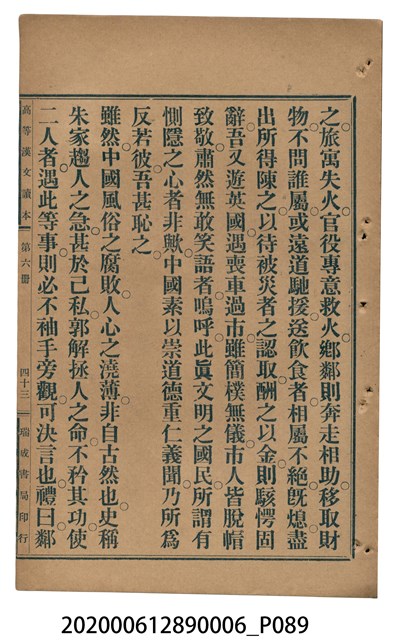 之旅寓失火官役專意救火鄉鄰則奔走相助移取財
物不問誰屬或遠道馳援送飲食者相屬不絕旣熄盡
出所得陳之以待被災者之認取酬之以金則駭愕固
辭吾又遊英國遇喪車過市雖簡樸無儀市人皆脫帽
致敬肅然無敢笑語者嗚呼此眞文明之國民所謂有
惻隱之心者非歟中國素以崇道德重仁義聞乃所爲
反若彼吾甚恥之
雖然中國風俗之腐敗人心之澆薄非自古然也史稱
朱家趨人之急甚於己私郭解拯人之命不矜其功使
二人者遇此等事則必不袖手旁觀可決言也禮曰鄰
高等漢文讀本 第六冊 四十三 瑞成書局印行
202000612890006_P089